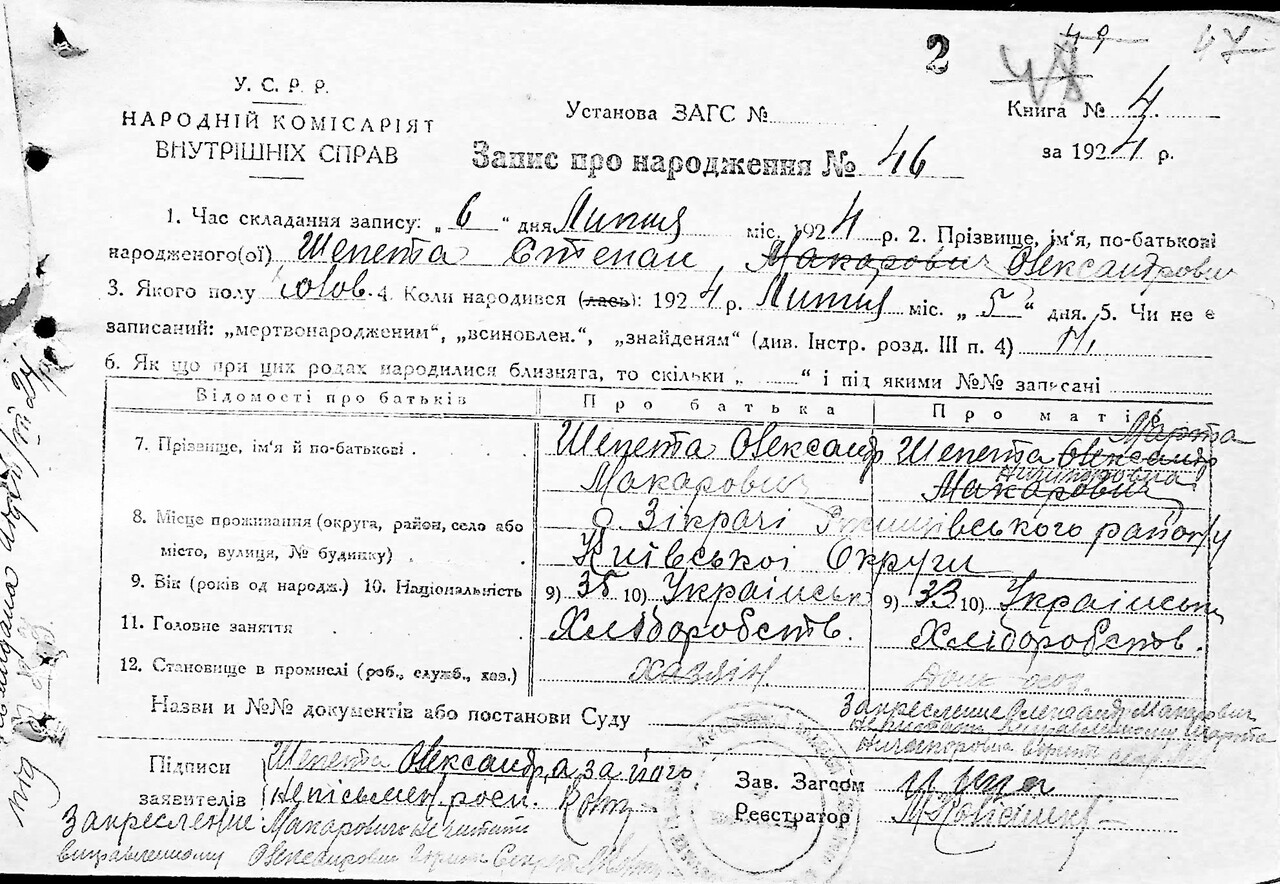 2 49 47
48
У. С. Р. Р.
НАРОДНІЙ КОМІСАРІЯТ
ВНУТРІШНІХ СПРАВ
Установа ЗАГС №
Книга № 4
Запис про народження № 46
за 1924 р.
1. Час складання запису: „6“ дня Липня міс. 1924 р. 2. Прізвище, ім'я, по-батькові
народженого(ої) Шепета Степан, Макарович Олександрович
3. Якого полу чолов. 4. Коли народився (лась): 1924 р. Липня міс. „5“ дня. 5. Чи не є
записаний: „мертвонародженим“, „всиновлен.“, „знайденям“ (див. Інстр. розд. III п. 4) Ні
6. Як що при цих родах народилися близнята, то скільки „ “ і під якими №№ записані
Відомості про батьків Про батька Про матір
Марта
7. Прізвище, ім'я й по-батькові Шепета Олександр Шепета Олександр
Макарович Макаровна
8. Місце проживання (округа, район, село або с. Зікрачі району
місто, вулиця, № будинку) Київської Округи
9. Вік (років од народж.) 10. Національність 9) 35 10) Українськ 9) 33 10) Українськ
11. Головне заняття Хліборобств. Хліборобств.
12. Становище в промислі (роб., служб., хаз.) хазяїн
Назви и №№ документів або постанови Суду
Закреслене Олександр Макарович
Підписи Шепета Олександра за його
заявителів неписьмен. росп.
Зав. Загсом
Реєстратор
Закреслене Макарович не читати
виправленному Олександрович